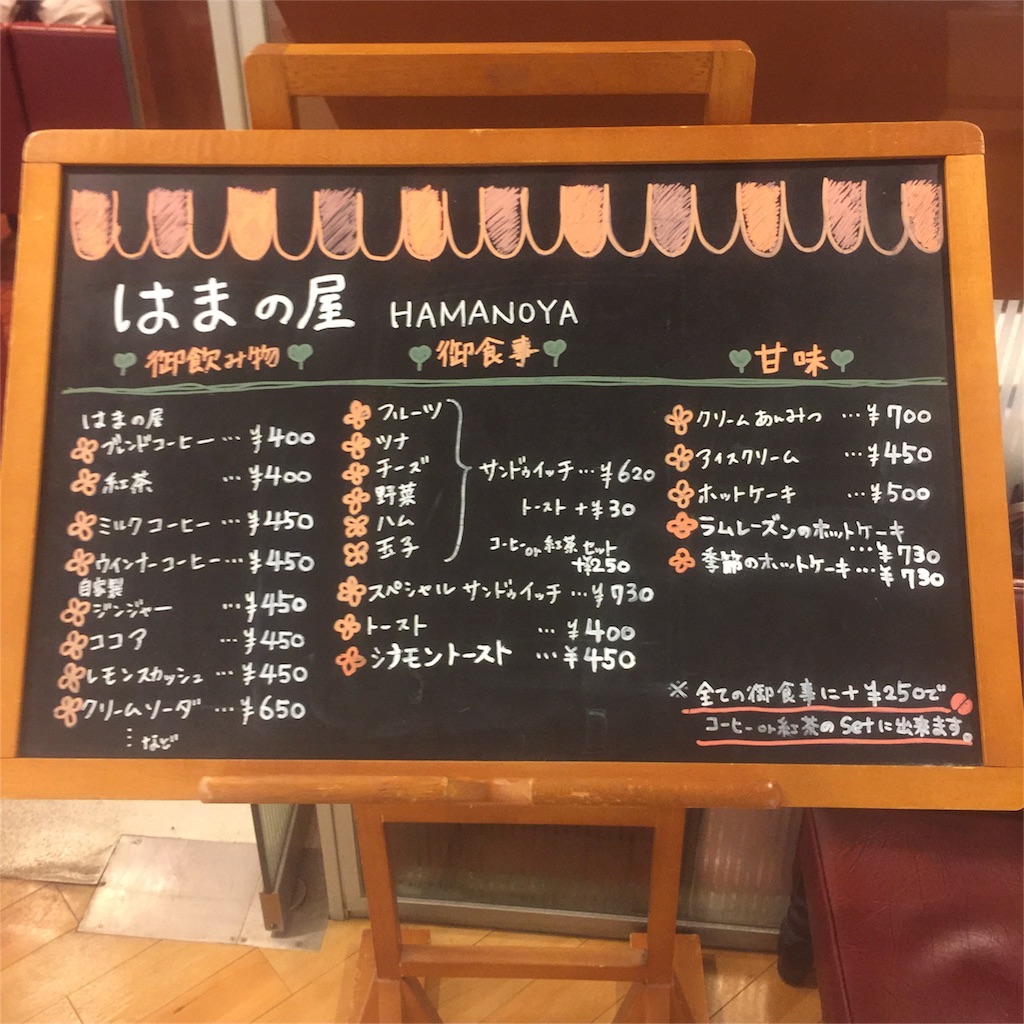 はまの屋 HAMANOYA
御飲み物
はまの屋
ブレンドコーヒー…¥400
紅茶…¥400
ミルクコーヒー…¥450
ウインナーコーヒー…¥450
自家製
ジンジャー…¥450
ココア…¥450
レモンスカッシュ…¥450
クリームソーダ…¥650
…など
御食事
フルーツ
ツナ
チーズ
野菜
ハム
玉子
サンドゥイッチ…¥620
トースト+¥30
コーヒーor紅茶セット
+¥250
スペシャルサンドゥイッチ…¥730
トースト…¥400
シナモントースト…¥450
甘味
クリームあんみつ…¥700
アイスクリーム…¥450
ホットケーキ…¥500
ラムレーズンのホットケーキ
…¥730
季節のホットケーキ…¥730
※全ての御食事に+¥250で
コーヒーor紅茶のsetに出来ます。